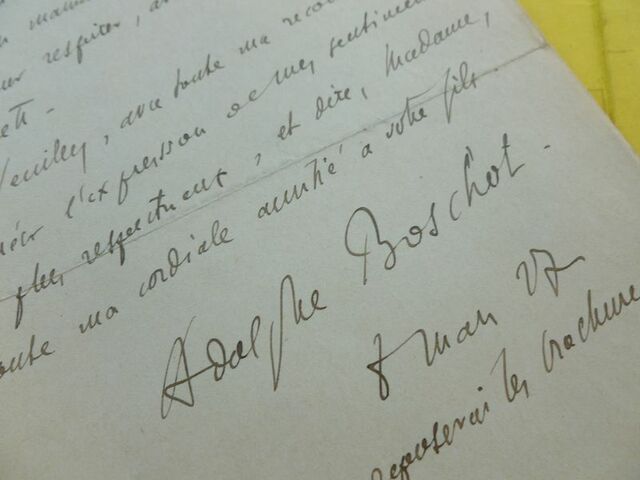 respirer,
Veuillez, avec toute ma reco
l'expression de mes sentimen
plus respectueux, et dire, Madame,
toute ma cordiale amitié à votre fils.
Adolphe Boschot.
8 mars 07
reposerai les brochure